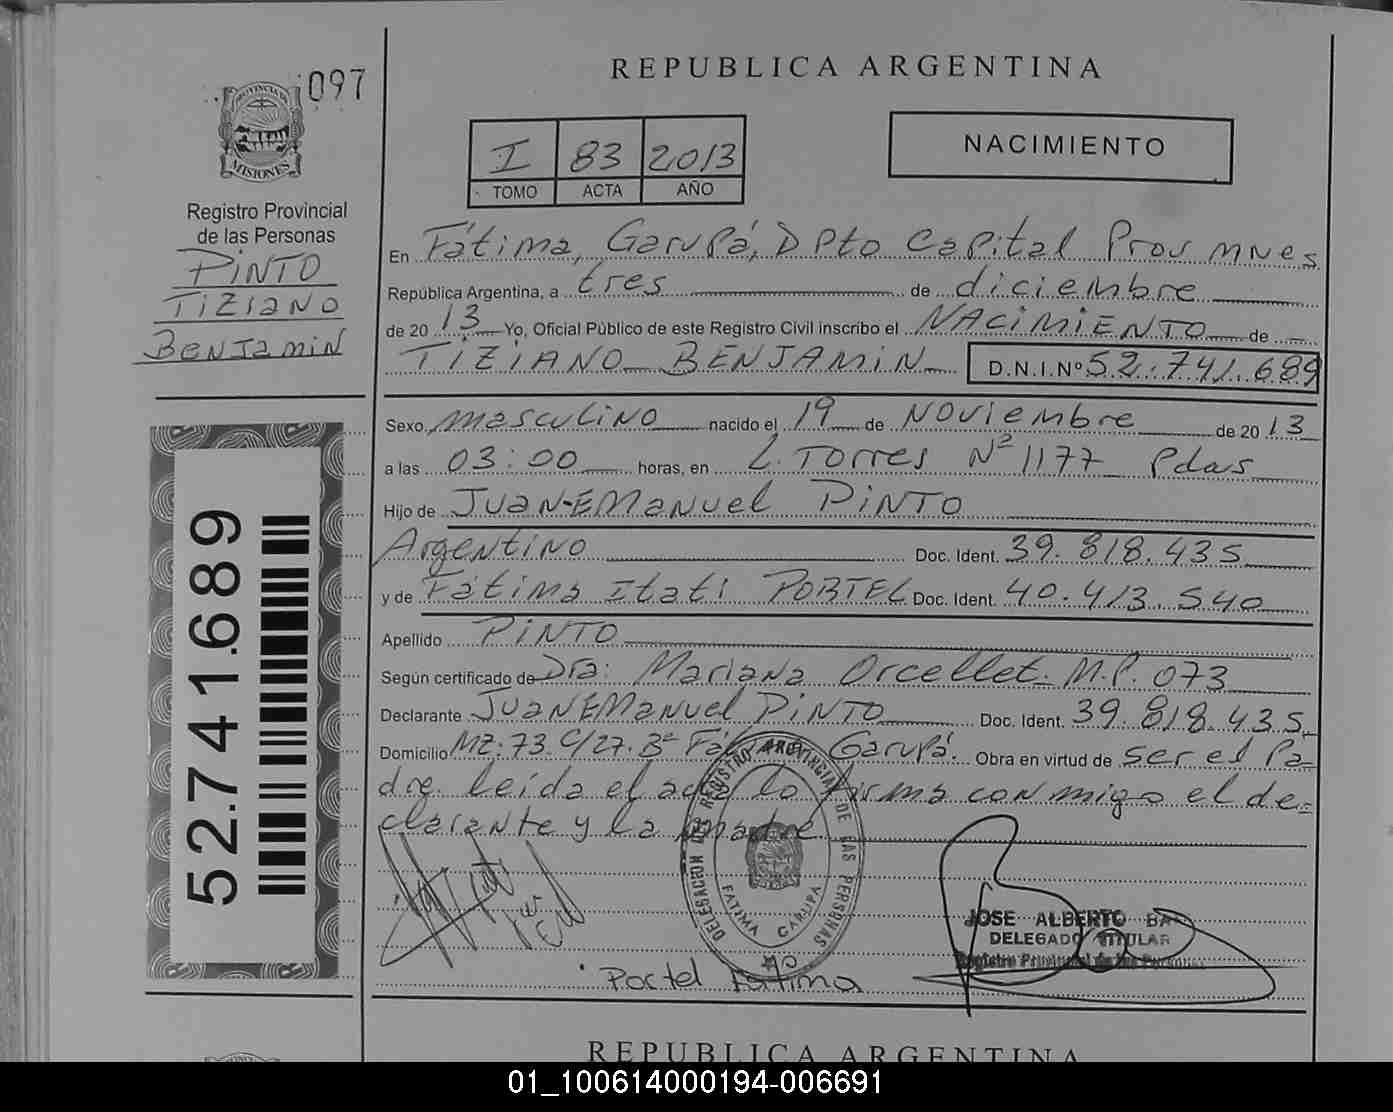 097
PROVINCIA DE
MISIONES
Registro Provincial
de las Personas
PINTO
TIZIANO
BENJAMIN
52.741.689
REPUBLICA ARGENTINA
I 83 2013
TOMO ACTA AÑO
NACIMIENTO
En Fátima, Garupá, Dpto Capital Prov mnes
República Argentina, a tres de diciembre
de 20 13 Yo, Oficial Público de este Registro Civil inscribo el NACIMIENTO de
TIZIANO BENJAMIN D.N.I.Nº 52.741.689
Sexo masculino nacido el 19 de Noviembre de 20 13
a las 03:00 horas, en L. Torres Nº 1177 Pdas
Hijo de Juan Emanuel PINTO
Argentino Doc. Ident. 39.818.435
y de Fátima Itatí PORTEL Doc. Ident. 40.413.540
Apellido PINTO
Según certificado de Dra: Mariana Orcellet. M.P. 073
Declarante Juan Emanuel PINTO Doc. Ident. 39.818.435
Domicilio MZ: 73 C/27. Bº Fátima Garupá. Obra en virtud de ser el Pa=
dre. leída el acta lo firma conmigo el de=
clarante y la madre.
DELEGACION DE REGISTRO PROVINCIAL DE LAS PERSONAS
FATIMA GARUPA
JOSE ALBERTO
DELEGADO TITULAR
Registro Provincial de las Personas
Portel Fatima
REPUBLICA ARGENTINA
01_100614000194-006691